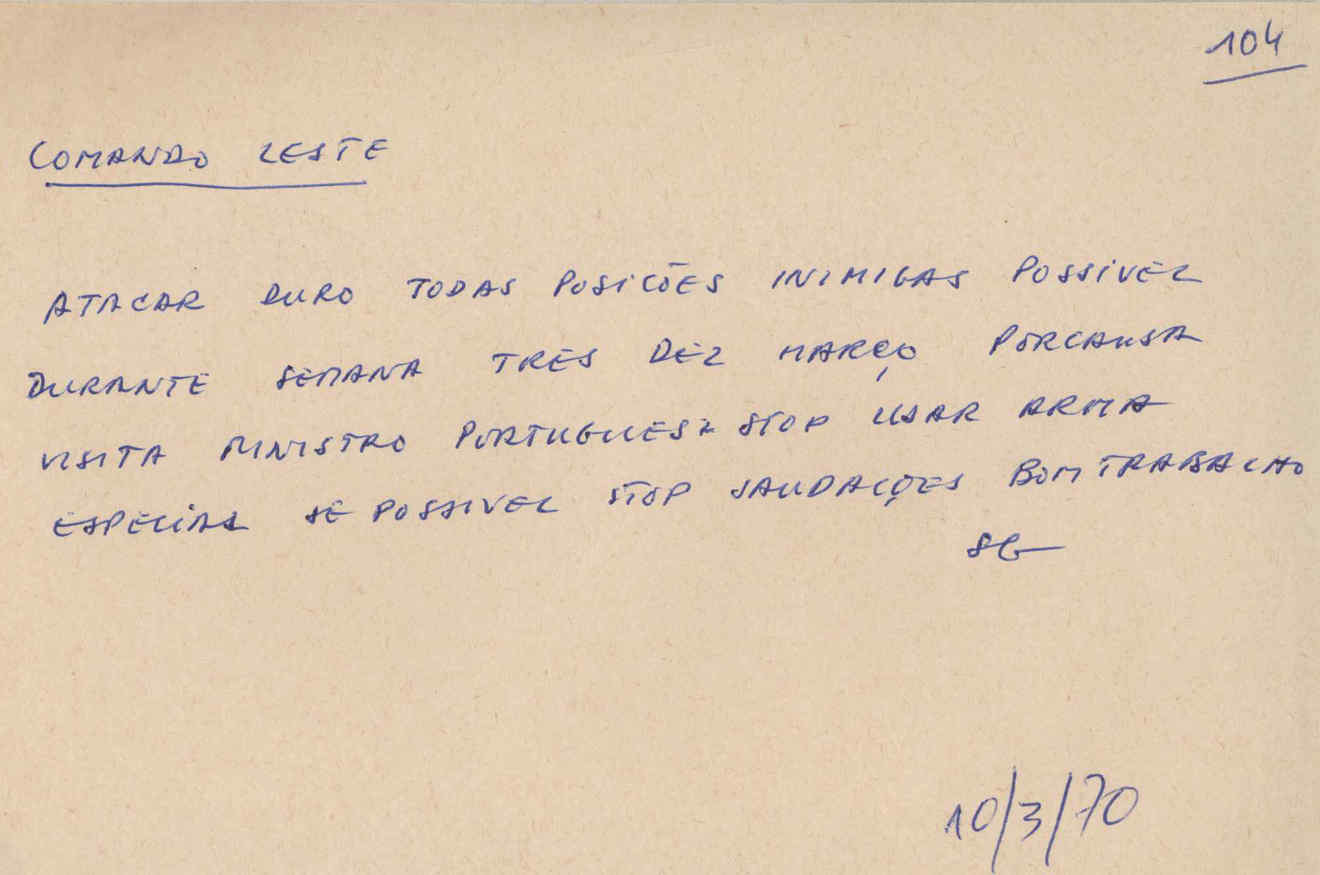 104
COMANDO LESTE
ATACAR DURO TODAS POSICÕES INIMIGAS POSSIVEL
DURANTE SEMANA TRES DEZ MARÇO PORCAUSA
VISITA MINISTRO PORTUGUES STOP USAR ARMA
ESPECIAL SE POSSIVEL STOP SAUDAÇÕES BOM TRABALHO
SG
10/3/70